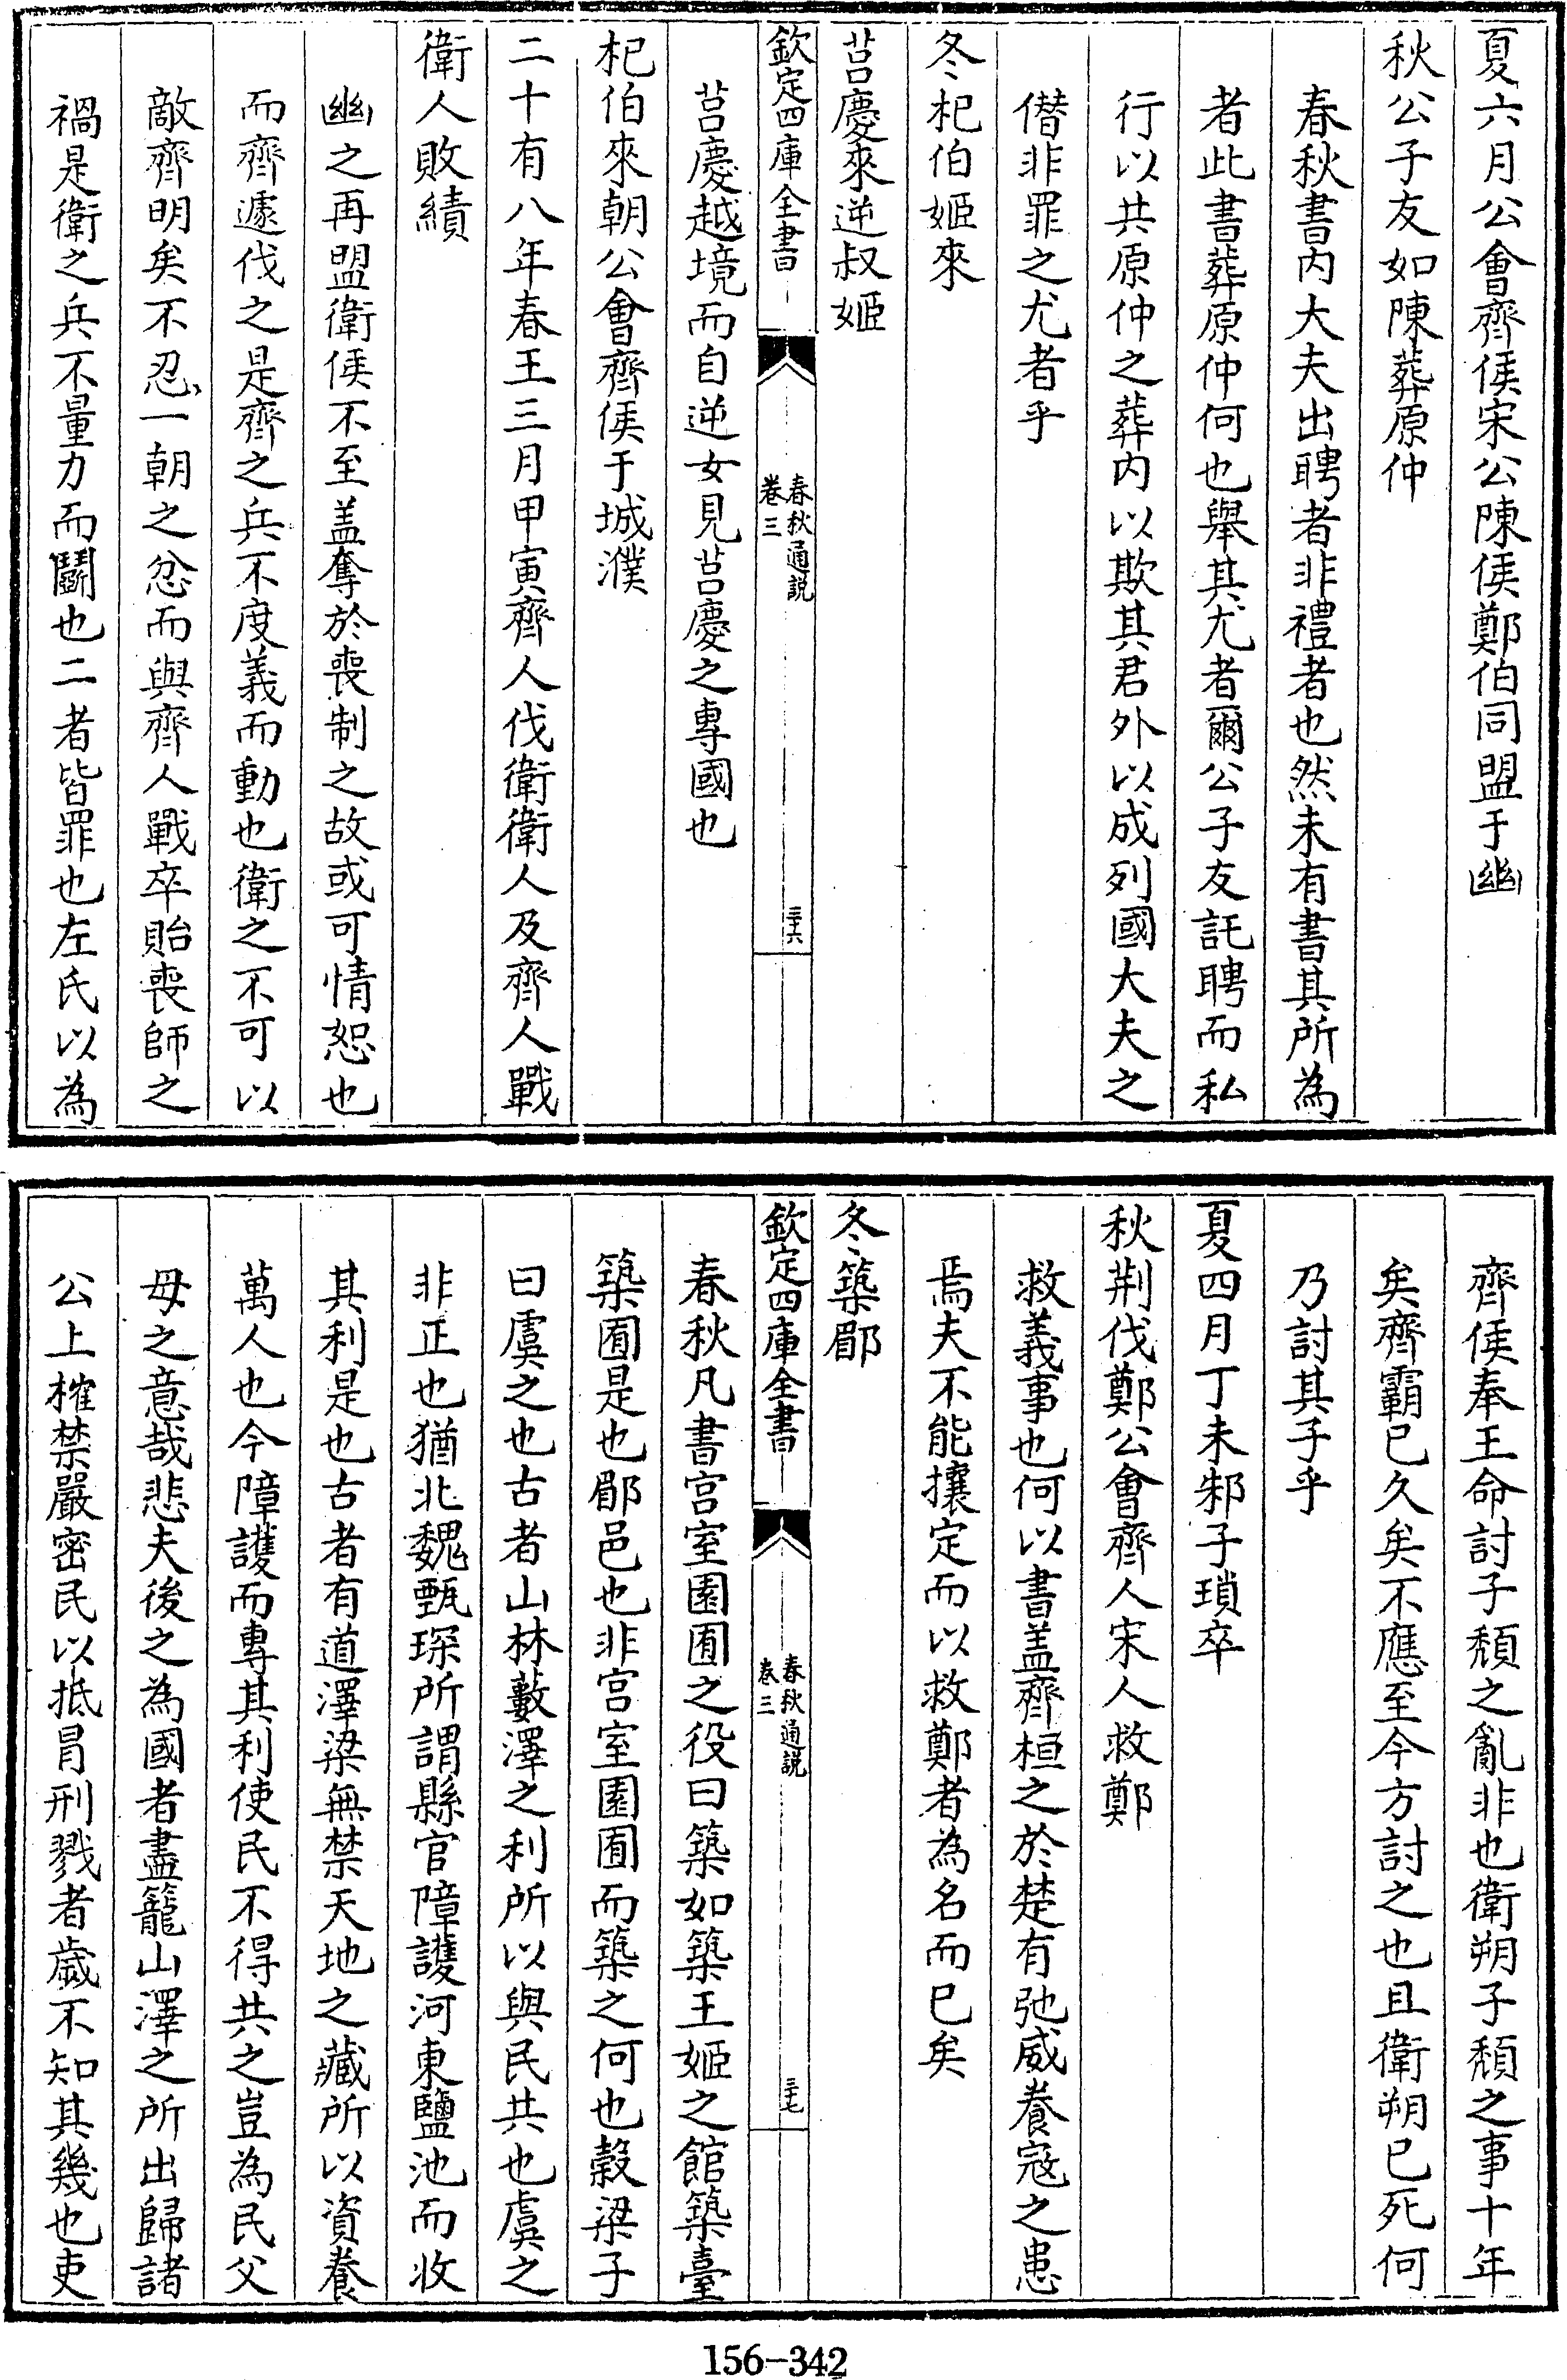 夏六月公會齊侯宋公陳侯鄭伯同盟于幽
秋公子友如陳葬原仲
春秋書內大夫出聘者非禮者也然未有書其所為
者此書葬原仲何也舉其尤者爾公子友託聘而私
行以共原仲之葬内以欺其君外以成列國大夫之
僭非罪之尤者乎
冬杞伯姬來
莒慶來逆叔姬
欽定四庫全書
春秋通說
卷三
三十六
莒慶越境而自逆女見莒慶之專國也
杞伯來朝公會齊侯于城濮
二十有八年春王三月甲寅齊人伐衛衛人及齊人戰
衛人敗績
幽之再盟衛侯不至盖奪於喪制之故或可情恕也
而齊遽伐之是齊之兵不度義而動也衛之不可以
敵齊明矣不忍一朝之忿而與齊人戰卒貽喪師之
禍是衛之兵不量力而鬬也二者皆罪也左氏以為
齊侯奉王命討子頹之亂非也衛朔子頹之事十年
矣齊霸已久矣不應至今方討之也且衛朔已死何
乃討其子乎
夏四月丁未邾子瑣卒
秋荆伐鄭公會齊人宋人救鄭
救義事也何以書盖齊桓之於楚有弛威養寇之患
焉夫不能攘定而以救鄭者為名而已矣
冬築郿
欽定四庫全書
春秋通說
卷三
三十七
春秋凡書宫室園囿之役曰築如築王姬之館築臺
築囿是也郿邑也非宫室園囿而築之何也榖梁子
曰虞之也古者山林藪澤之利所以與民共也虞之
非正也猶北魏甄琛所謂縣官障護河東鹽池而收
其利是也古者有道澤梁無禁天地之藏所以資養
萬人也今障護而專其利使民不得共之豈為民父
母之意哉悲夫後之為國者盡籠山澤之所出歸諸
公上榷禁嚴密民以抵冒刑戮者歲不知其幾也吏
156-342